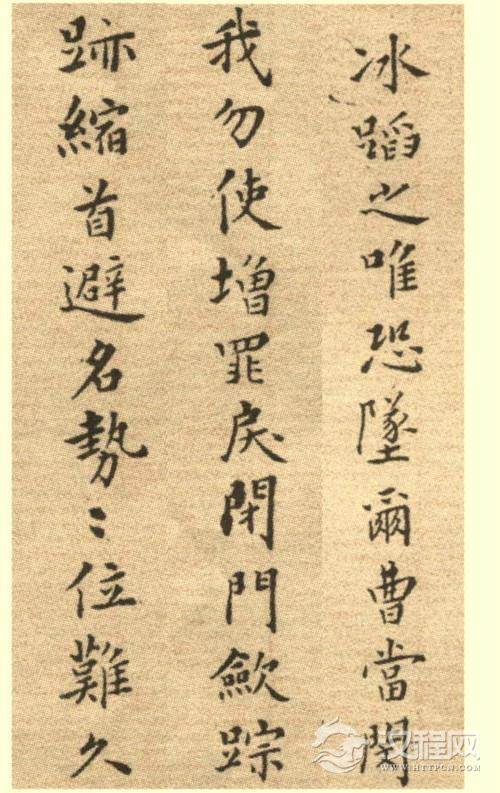 冰蹈之唯恐墜爾曹當閔
我勿使增罪戾閉門歛踪
跡縮首避名勢〻位難久
汉程网
HTTPCN.COM